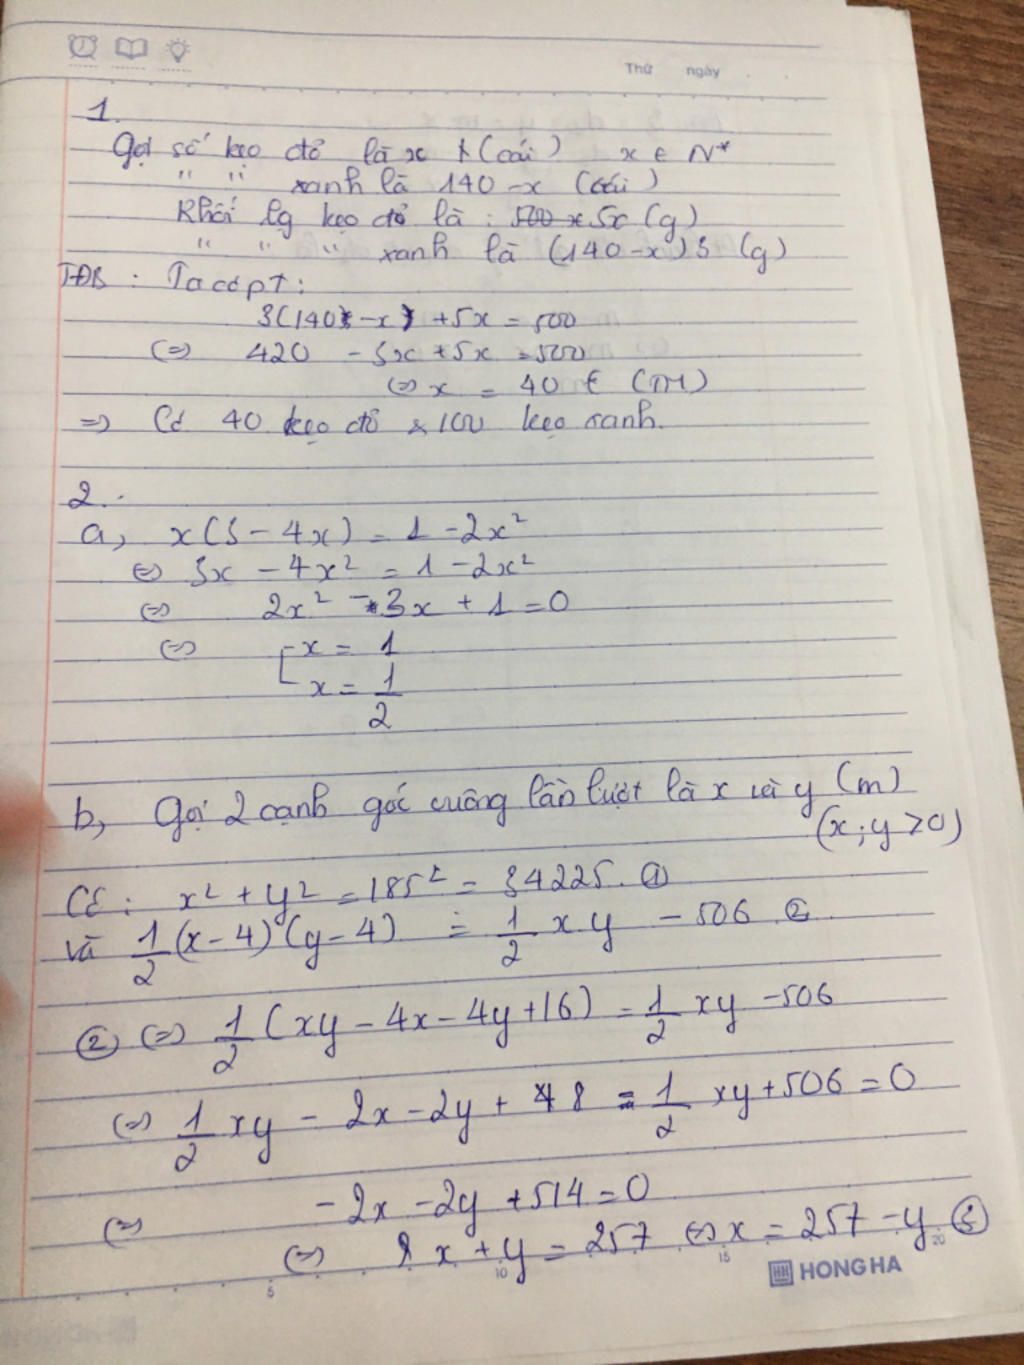 Thứ ngày
1.
Gọi số kẹo đỏ là x (cái) x ∈ N*
" " xanh là 140 - x (cái)
Khối lg kẹo đỏ là : 5x (g)
" " " xanh là (140-x)3 (g)
TĐB : Ta có pT :
3(140 - x) + 5x = 500
(=) 420 - 3x + 5x = 500
(=) x = 40 (TM)
=) Có 40 kẹo đỏ & 100 kẹo xanh.
2.
a, x(3 - 4x) = 1 - 2x²
(=) 3x - 4x² = 1 - 2x²
(=) 2x² - 3x + 1 = 0
(=) [ x = 1
x = 1/2
b, Gọi 2 cạnh góc vuông lần lượt là x và y (m)
(x; y > 0)
Có : x² + y² = 185² = 34225. ①
và 1/2 (x - 4) (y - 4) = 1/2 xy - 506 ②
② (=) 1/2 (xy - 4x - 4y + 16) = 1/2 xy - 506
(=) 1/2 xy - 2x - 2y + 8 - 1/2 xy + 506 = 0
(=) - 2x - 2y + 514 = 0
(=) x + y = 257 (=) x = 257 - y ③
5 10 15 20
HONG HA